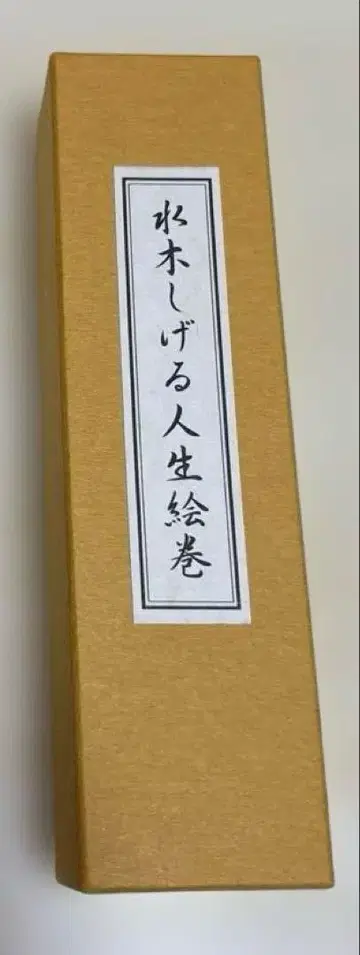 水木しげる人生絵巻